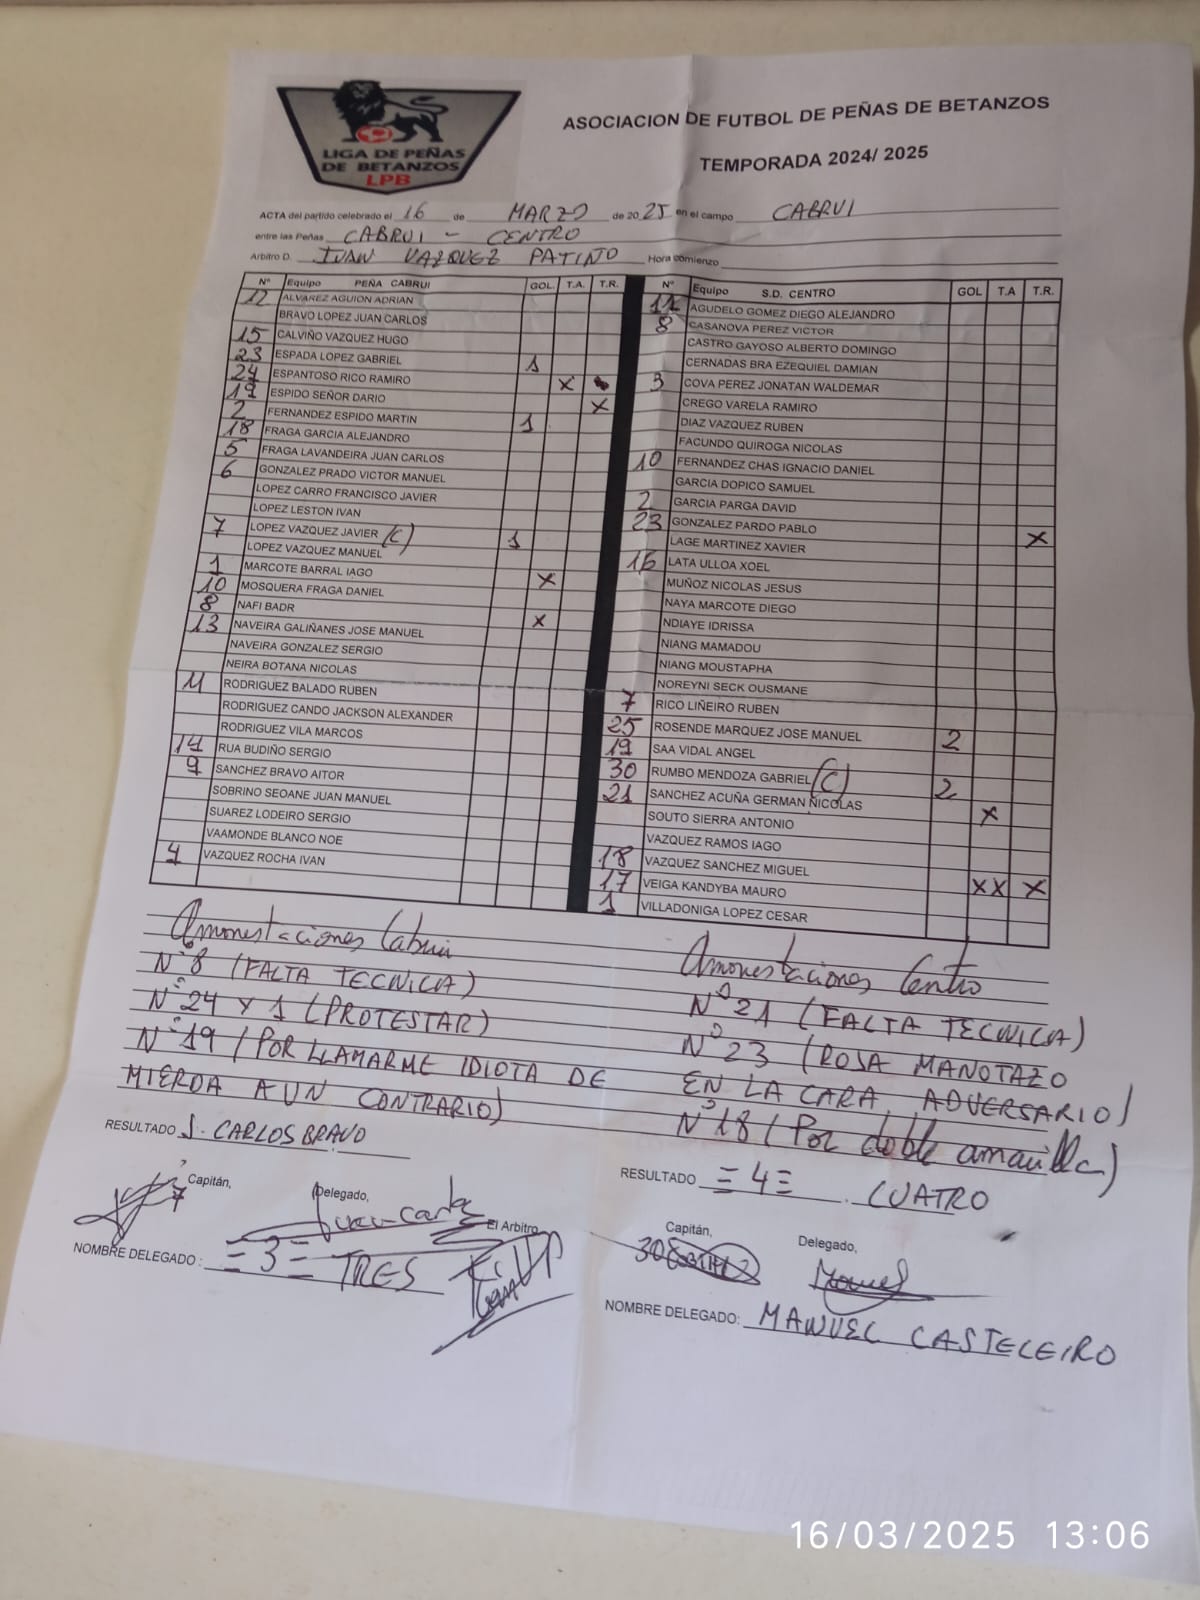 LIGA DE PEÑAS
DE BETANZOS
LPB
ASOCIACION DE FUTBOL DE PEÑAS DE BETANZOS
TEMPORADA 2024/ 2025
ACTA del partido celebrado el 16 de MARZO de 2025 en el campo CABRUI
entre las Peñas CABRUI - CENTRO
Arbitro D. IVAN VAZQUEZ PATIÑO Hora comienzo
Nº Equipo PEÑA CABRUI GOL. T.A. T.R.
12 ALVAREZ AGUION ADRIAN
BRAVO LOPEZ JUAN CARLOS
15 CALVIÑO VAZQUEZ HUGO
23 ESPADA LOPEZ GABRIEL 1
24 ESPANTOSO RICO RAMIRO X
19 ESPIDO SEÑOR DARIO X
2 FERNANDEZ ESPIDO MARTIN 1
18 FRAGA GARCIA ALEJANDRO
5 FRAGA LAVANDEIRA JUAN CARLOS
6 GONZALEZ PRADO VICTOR MANUEL
LOPEZ CARRO FRANCISCO JAVIER
LOPEZ LESTON IVAN
7 LOPEZ VAZQUEZ JAVIER (C) 1
LOPEZ VAZQUEZ MANUEL
1 MARCOTE BARRAL IAGO X
10 MOSQUERA FRAGA DANIEL
8 NAFI BADR X
13 NAVEIRA GALIÑANES JOSE MANUEL
NAVEIRA GONZALEZ SERGIO
NEIRA BOTANA NICOLAS
11 RODRIGUEZ BALADO RUBEN
RODRIGUEZ CANDO JACKSON ALEXANDER
RODRIGUEZ VILA MARCOS
14 RUA BUDIÑO SERGIO
9 SANCHEZ BRAVO AITOR
SOBRINO SEOANE JUAN MANUEL
SUAREZ LODEIRO SERGIO
VAAMONDE BLANCO NOE
4 VAZQUEZ ROCHA IVAN
Nº Equipo S.D. CENTRO GOL T.A T.R.
11 AGUDELO GOMEZ DIEGO ALEJANDRO
8 CASANOVA PEREZ VICTOR
CASTRO GAYOSO ALBERTO DOMINGO
CERNADAS BRA EZEQUIEL DAMIAN
3 COVA PEREZ JONATAN WALDEMAR
CREGO VARELA RAMIRO
DIAZ VAZQUEZ RUBEN
FACUNDO QUIROGA NICOLAS
10 FERNANDEZ CHAS IGNACIO DANIEL
GARCIA DOPICO SAMUEL
2 GARCIA PARGA DAVID
23 GONZALEZ PARDO PABLO X
LAGE MARTINEZ XAVIER
16 LATA ULLOA XOEL
MUÑOZ NICOLAS JESUS
NAYA MARCOTE DIEGO
NDIAYE IDRISSA
NIANG MAMADOU
NIANG MOUSTAPHA
NOREYNI SECK OUSMANE
7 RICO LIÑEIRO RUBEN
25 ROSENDE MARQUEZ JOSE MANUEL 2
19 SAA VIDAL ANGEL
30 RUMBO MENDOZA GABRIEL (C) 2
21 SANCHEZ ACUÑA GERMAN NICOLAS X
SOUTO SIERRA ANTONIO
VAZQUEZ RAMOS IAGO
18 VAZQUEZ SANCHEZ MIGUEL
17 VEIGA KANDYBA MAURO XX X
1 VILLADONIGA LOPEZ CESAR
Amonestaciones Cabrui
Nº 8 (FALTA TECNICA)
Nº 24 Y 1 (PROTESTAR)
Nº 19 (POR LLAMARME IDIOTA DE
MIERDA A UN CONTRARIO)
RESULTADO J. CARLOS BRAVO
Capitán, Delegado, El Arbitro
7
NOMBRE DELEGADO : =3= TRES
Amonestaciones Centro
Nº 21 (FALTA TECNICA)
Nº 23 (ROSA MANOTAZO
EN LA CARA, ADVERSARIO)
Nº 18 (Por doble amarilla)
RESULTADO =4= CUATRO
Capitán, Delegado,
30
Manuel
NOMBRE DELEGADO: MANUEL CASTELEIRO
16/03/2025 13:06